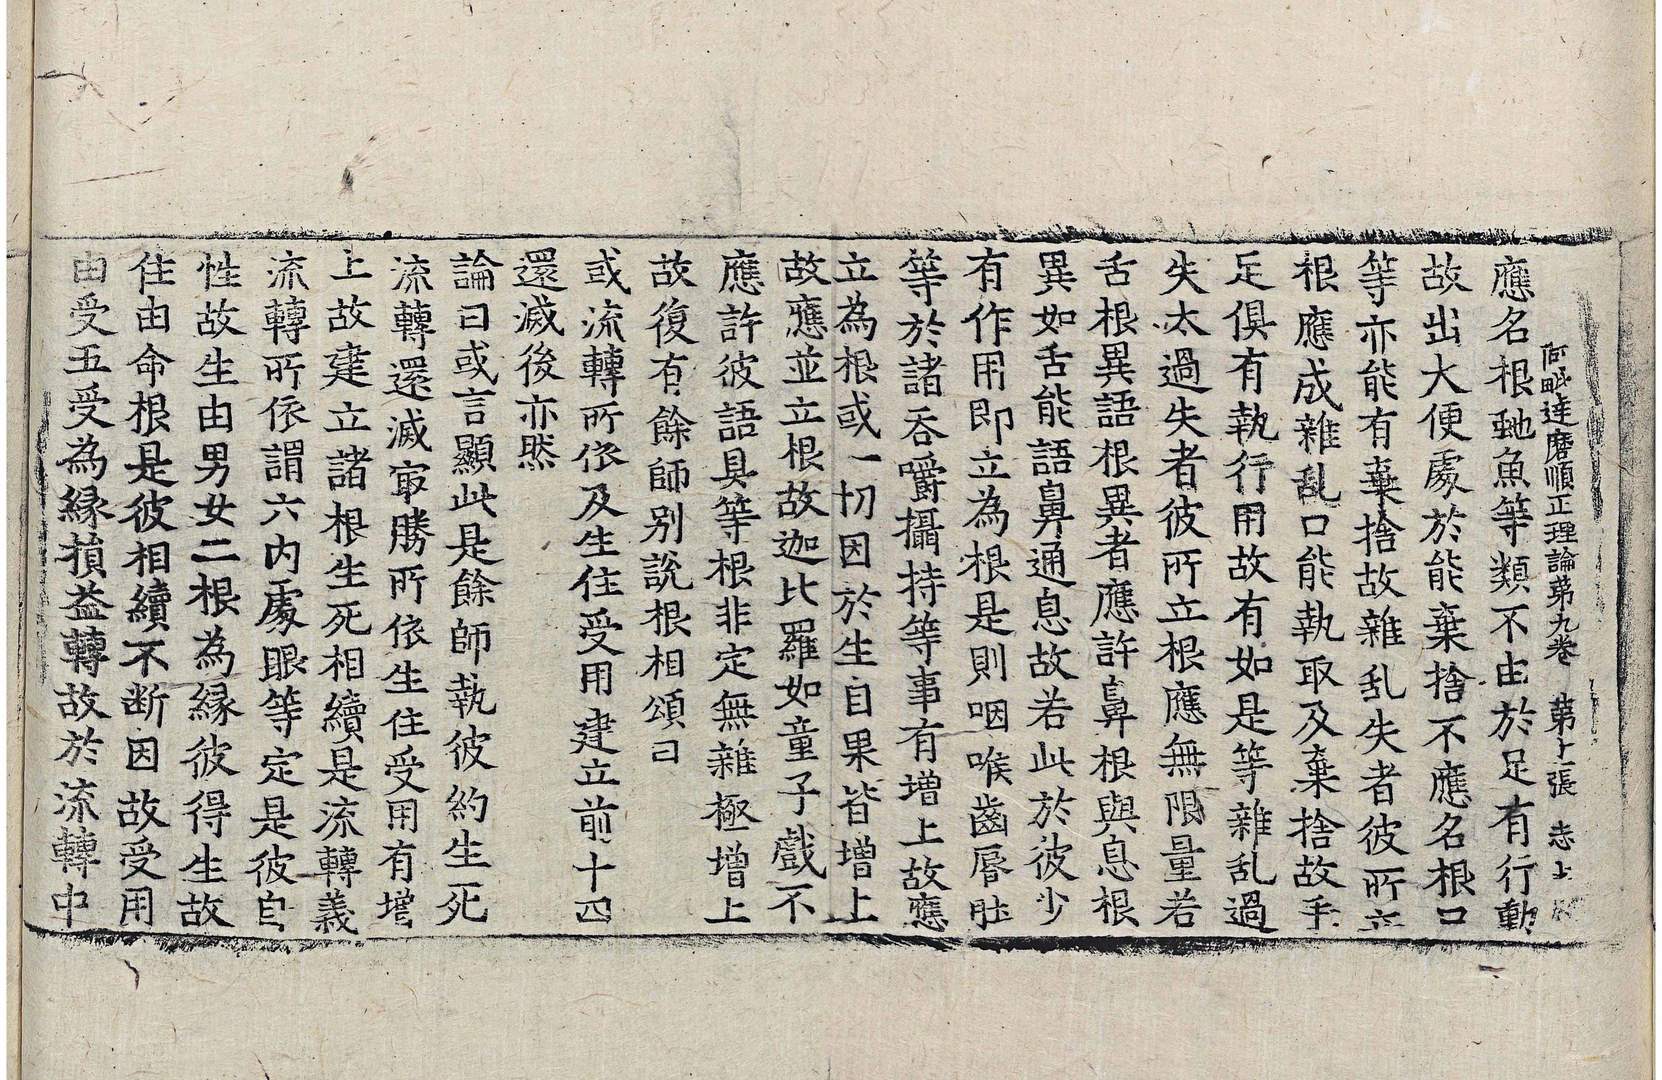 阿毗達磨順正理論第九卷　第十一張　志上
應名根虵魚等類不由於足有行動
故出大便處於能棄捨不應名根口
等亦能有棄捨故雜亂失者彼所立
根應成雜乱口能執取及棄捨故手
足俱有執行用故有如是等雜乱過
失太過失者彼所立根應無限量若
舌根異語根異者應許鼻根與息根
異如舌能語鼻通息故若此於彼少
有作用即立為根是則咽喉齒脣肚
等於諸吞嚼攝持等事有增上故應
立為根或一切因於生自果皆增上
故應並立根故迦比羅如童子戲不
應許彼語具等根非定無雜極增上
故復有餘師別說根相頌曰
或流轉所依及生住受用建立前十四
還滅後亦然
論曰或言顯此是餘師執彼約生死
流轉還滅㝡勝所依生住受用有增
上故建立諸根生死相續是流轉義
流轉所依謂六內處眼等定是彼自
性故生由男女二根為緣彼得生故
住由命根是彼相續不断因故受用
由受五受為縁損益轉故於流轉中